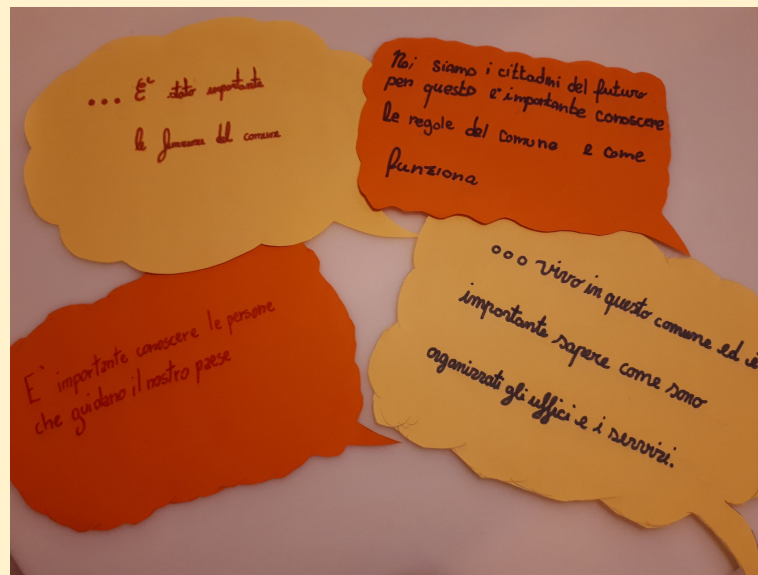 ... E' stato importante
le funzione del comune
Noi siamo i cittadini del futuro
per questo è importante conoscere
le regole del comune e come
funziona
E' importante conoscere le persone
che guidano il nostro paese
... vivo in questo comune ed è
importante sapere come sono
organizzati gli uffici e i servizi.